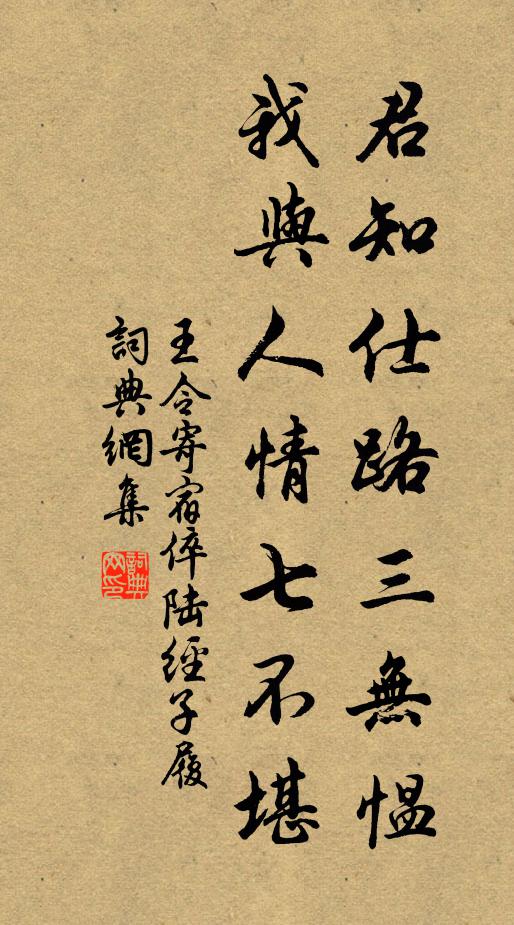 君知仕路三無愠
我與人情七不堪
王令寄宿倅陸經子履
詞典網集
詞典網印